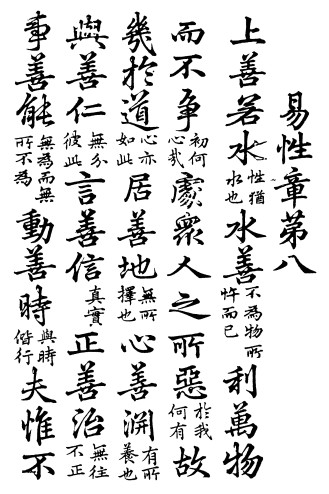 易性章第八
上善若水性猶水也水善不為物所忤而已利萬物
而不爭初何心哉處衆人之所惡於我何有故
幾於道心亦如此居善地無所擇也心善淵有所養也
與善仁無分彼此言善信真實正善治無往不正
事善能無為而無所不為動善時與時偕行夫惟不